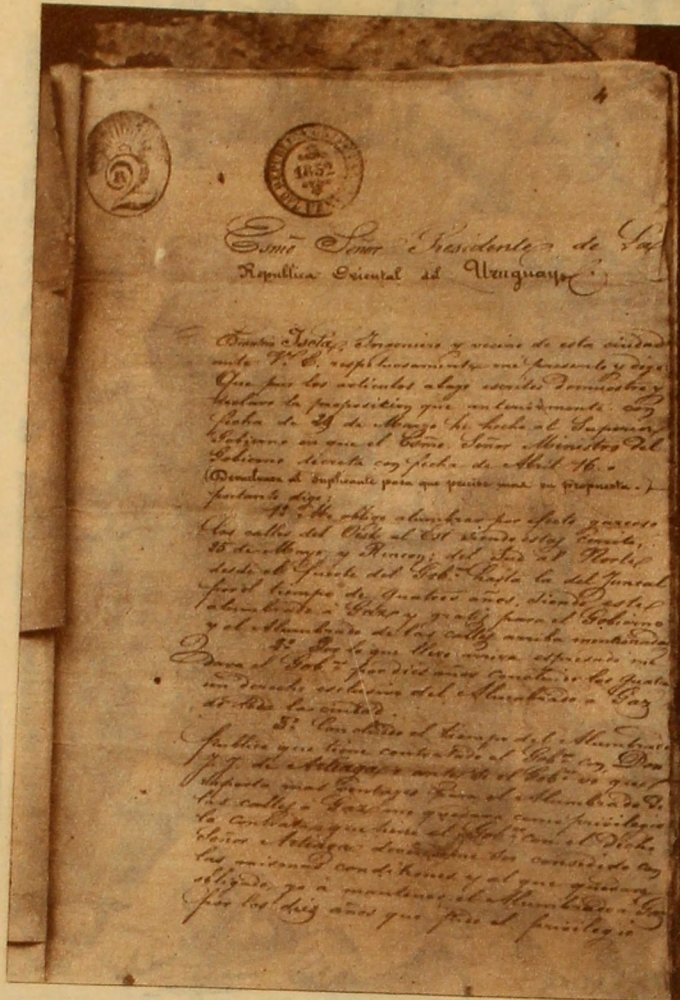 4
2
1852
Esmõ Señor Presidente de La
Republica Oriental del Uruguay
Isola, Ingeniero y vecino de esta ciudad
ante V. E. respetuosamente me presento y digo
Que por los articulos abajo escritos demuestro y
declaro la proposicion que anteriormente con
fecha de 29 de Marzo he hecho al Superior
Gobierno en que el Esmõ Señor Ministro del
Gobierno decreta con fecha de Abril 16.
suplicante para que precise mas su propuesta.)
portanto digo:
1º Me obligo alumbrar por efecto gazeoso
las calles del Oeste al Est siendo estas Cerrito,
25 de Mayo, y Rincon; del Sud al Norte
desde el fuerte del Gobº hasta la del Juncal
por el tiempo de quatro años, siendo este
a Gaz y gratis para el Gobierno
y el Alumbrado de las calles arriba mencionadas
2º Por lo que llevo arriba espresado me
Dara el Gobº por dies años concluidos los quatro
un derecho esclusivo del Alumbrado a Gaz
de toda la ciudad.
3º Concluido el tiempo del Alumbrado
Publico que tiene contratado el Gobº con Don
J. J. de Arteaga, o antes si el Gobº ve que
reporta mas bentajas para el Alumbrado de
las calles a Gaz me quedara como privilegio
la contrata que tiene el Gobº con el dicho
Señor Arteaga con
las mismas condiciones y al que quedare
obligado yo a mantener el Alumbrado a Gaz
por los diez años que pido el privilegio